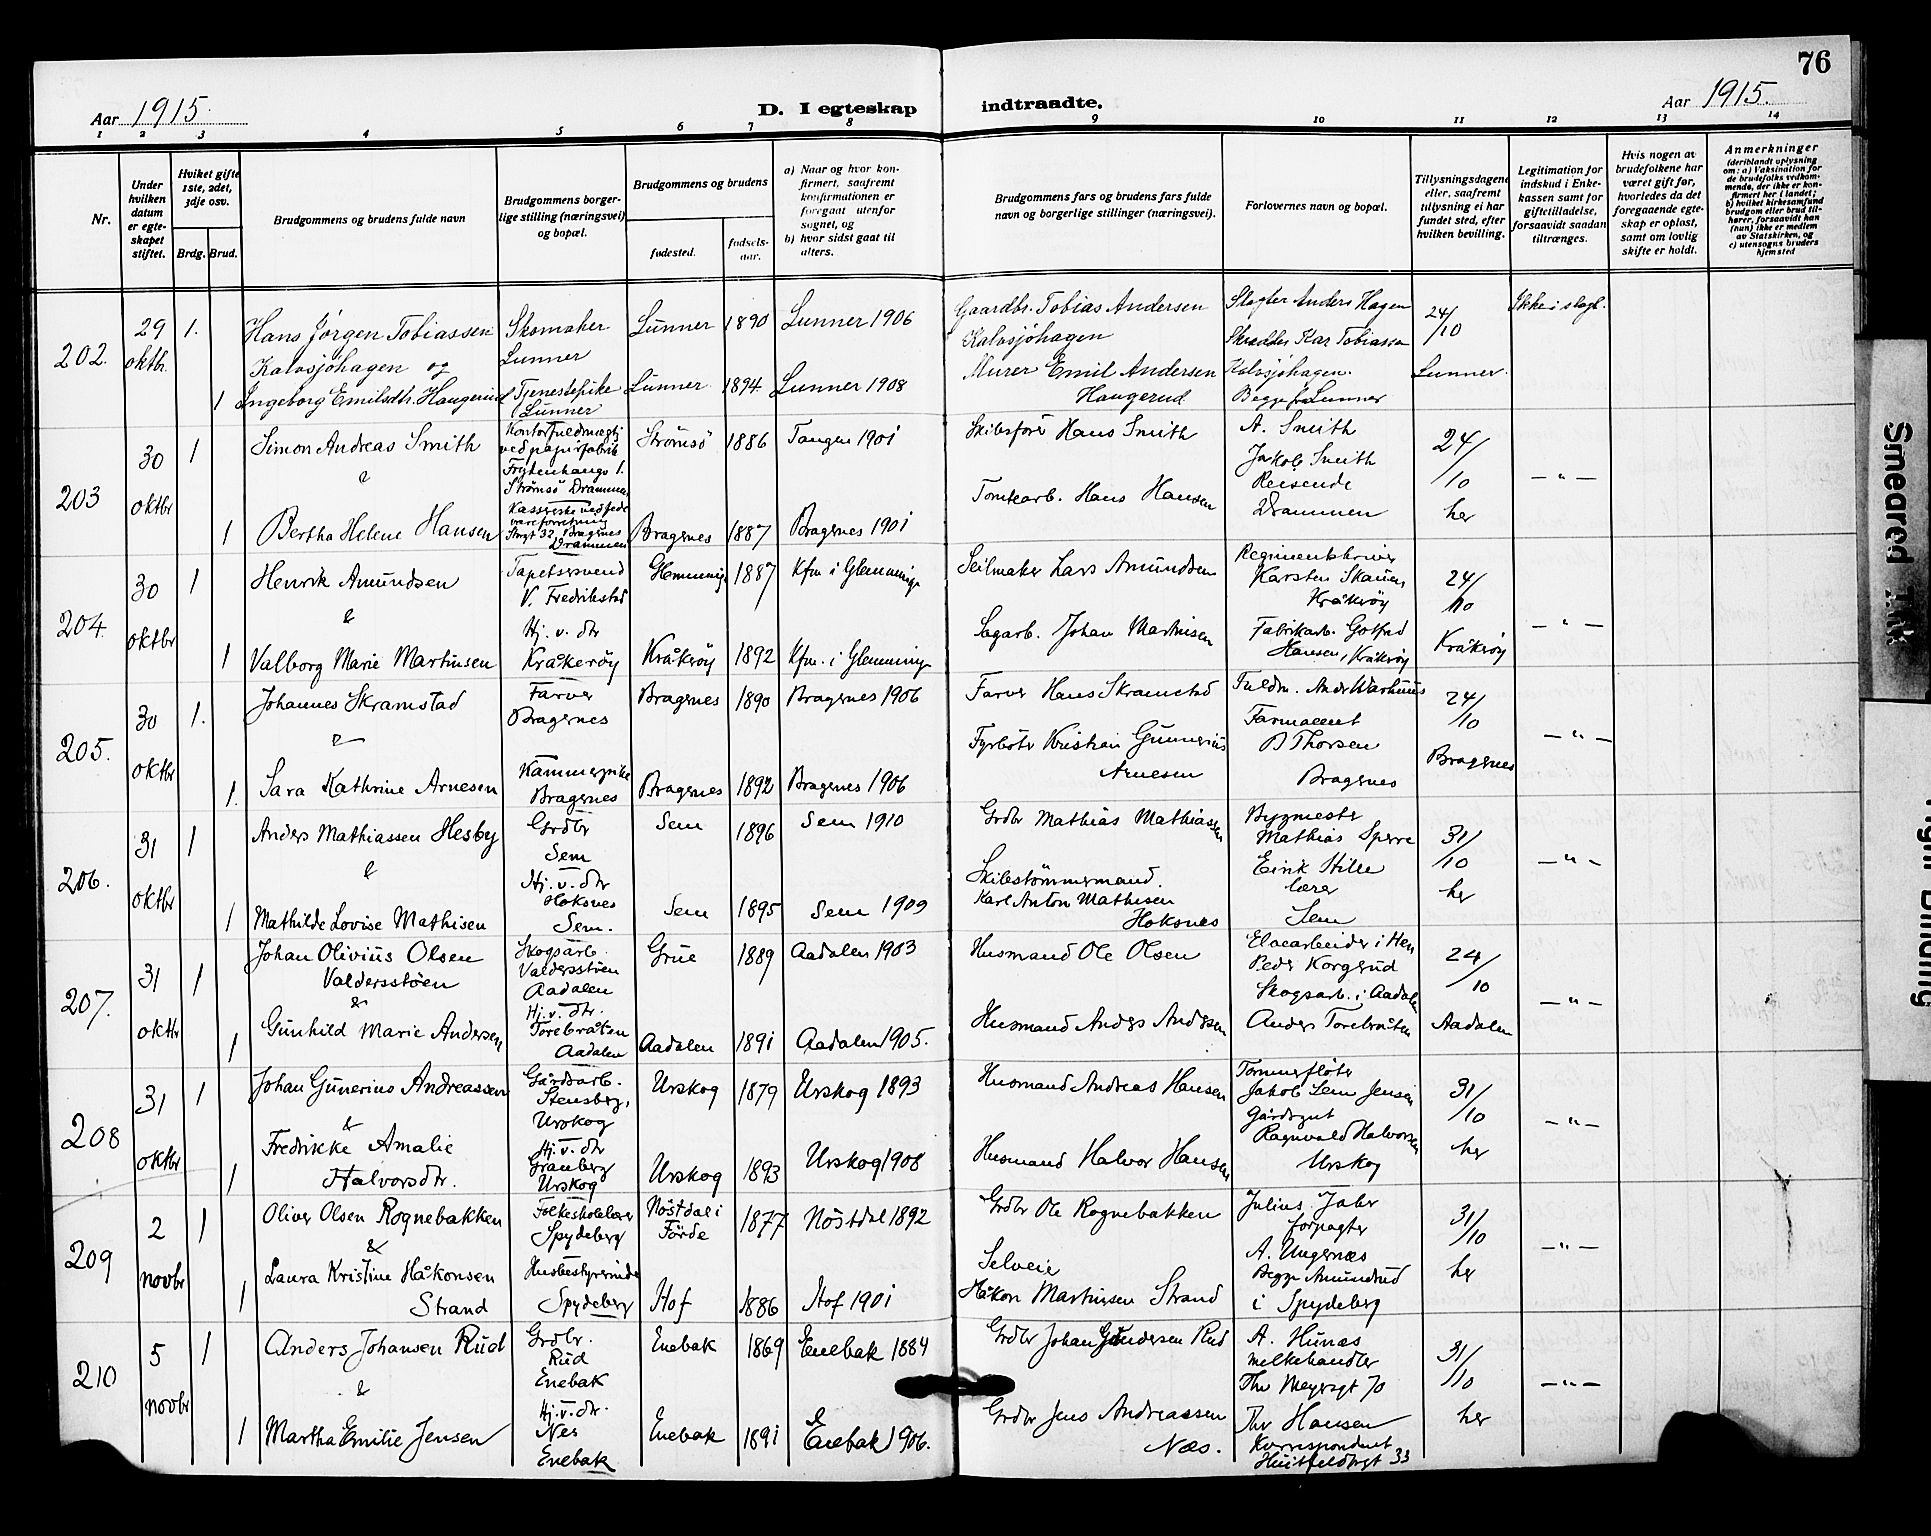 76
Aar 1915.
D. I egteskap indtraadte.
Aar 1915.
1 2 3 4 5 6 7 8 9 10 11 12 13 14
Nr.
Under hvilken datum er egteskapet stiftet.
Hvilket gifte 1ste, 2det, 3dje osv.
Brdg. Brud.
Brudgommens og brudens fulde navn
Brudgommens borgerlige stilling (næringsvei) og bopæl.
Brudgommens og brudens
fødested.
fødselsaar.
a) Naar og hvor konfirmert, saafremt konfirmationen er foregaat utenfor sognet, og
b) hvor sidst gaat til alters.
Brudgommens fars og brudens fars fulde navn og borgerlige stillinger (næringsvei).
Forlovernes navn og bopæl.
Tillysningsdagene eller, saafremt tillysning ei har fundet sted, efter hvilken bevilling.
Legitimation for indskud i Enkekassen samt for giftetilladelse, forsaavidt saadan tiltrænges.
Hvis nogen av brudefolkene har været gift før, hvorledes da det foregaaende egteskap er opløst, samt om lovlig skifte er holdt.
Anmerkninger
(deriblandt oplysning om: a) Vaksination for de brudefolks vedkommende, der ikke er konfirmert her i landet; b) hvilket kirkesamfund brudgom eller brud tilhører, forsaavidt han (hun) ikke er medlem av Statskirken, og c) utensogns bruders hjemsted
202. 29 oktbr. 1. Hans Jørgen Tobiassen Kalvsjøhagen og
Skomaker Lunner
Lunner 1890 Lunner 1906
Gaardbr. Tobias Andersen Kalvsjøhagen
Slagter Anders Hagen
Skrædder Kar Tobiassen
Kalvsjøhagen.
Begge fra Lunner
24/10 Lunner.
Ikke i slegt.
1 Ingeborg Emilsdtr. Haugerud
Tjenestepike Lunner
Lunner 1894 Lunner 1908
Murer Emil Andersen Haugerud
203 30 oktbr 1 Simon Andreas Smith
&
Kontorfuldmægtig ved papirfabrik
Strømsø Drammen
Strømsø 1886 Tangen 1901
Skibsfører Hans Smith
A. Smith
Jakob Smith
Reisende
Drammen
24/10 her
— " —
1 Bertha Helene Hansen
Kassererske ved fedevareforretning
Storgt 32, Bragernes Drammen
Bragernes 1887 Bragernes 1901
Tomtearb. Hans Hansen
204. 30 oktbr 1 Henrik Amundsen
&
Tapetsersvend
V. Fredrikstad
Glemminge 1887 Kfm i Glemminge
Seilmaker Lars Amundsen
Regimentskriver
Karsten Skauen
Kråkerøy
Fabrikarb. Gotfred
Hansen, Kråkerøy
24/10 Kråkrøy
— " —
1 Valborg Marie Martinsen
Hj. v. dtr
Kråkerøy
Kråkrøy 1892 Kfm. i Glemminge
Sagarb. Johan Martinsen
205. 30 oktbr 1. Johannes Skramstad
&
Farver
Bragernes
Bragernes 1890 Bragernes 1906
Farver Hans Skramstad
Fuldm. Andr Warhuus
Farmaceut
B Thorsen
Bragernes
24/10 Bragernes
— " —
1. Sara Kathrine Arnesen
Kammerpike
Bragernes
Bragernes 1892 Bragernes 1906
Fyrbøter Kristian Gunnerius
Arnesen
206. 31 oktbr 1 Anders Mathiassen Hesby
&
Grdbr
Sem
Sem 1896 Sem 1910
Grdbr Mathias Mathiassen
Bygmester
Mathias Sperre
Eirik Hille
lærer
Sem
31/10 her
— " —
1 Mathilde Lovise Mathisen
Hj. v. dtr
Hoksnes
Sem.
Sem 1895 Sem 1909
Skibstømmermand.
Karl Anton Mathisen
Hoksnes
207. 31 oktbr 1 Johan Olivius Olsen
Valdersstøen
&
Skogsarb.
Valdersstøen
Aadalen
Grue 1889 Aadalen 1903
Husmand Ole Olsen
Elvearbeider i Hen
Peder Korgerud
Skogsarb. i Aadalen
Anders Torebråten
24/10 Aadalen
— " —
1 Gunhild Marie Andersen
Hj. v. dtr.
Torebråten
Aadalen
Aadalen 1891 Aadalen 1905.
Husmand Anders Andersen
208 31 oktbr 1 Johan Gunerius Andreassen
&
Gårdsarb.
Stensberg,
Urskog
Urskog 1879 Urskog 1893
Husmand Andreas Hansen
Tømmerfløter
Jakob Lem Jensen
Gårdsgut
Ragnvald Halvorsen
Urskog
31/10 her
— " —
1 Fredrikke Amalie
Halvorsdtr.
Hj. v. dtr
Granberg
Urskog
Urskog 1893 Urskog 1908
Husmand Halvor Hansen
209 2 novbr 1 Oliver Olsen Rognebakken
&
Folkeskolelærer
Spydeberg
Nøstdal i Førde 1877 Nøstdal 1892
Grdbr Ole Rognebakken
Julius Jaber
forpagter
A. Ungernæs
Begge Amundrud
i Spydeberg
31/10 her
— " —
1 Laura Kristine Håkonsen
Strand
Husbestyrerinde
Spydeberg
Hof 1886 Hof 1901
Selveier
Håkon Martinsen Strand
210 5 novbr 1 Anders Johansen Rud
&
Grdbr.
Rud
Enebak
Enebak 1869 Enebak 1884
Grdbr Johan Gundersen Rud
A. Hunæs
melkehandler
Thv Meyersgt 70
Thr Hansen
Korrespondent
Huitfeldtsgt 33
31/10 her
— " —
1 Martha Emilie Jensen
Hj. v. dtr.
Nes
Enebak
Enebak 1891 Enebak 1906.
Grdbr Jens Andreassen
Næs.
Smeared Ink
Tight Binding